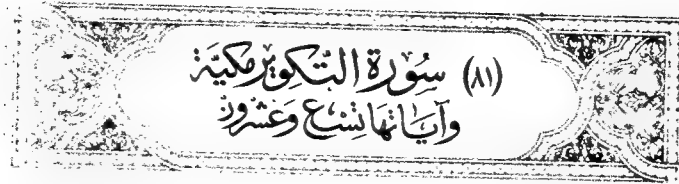 (٨١) سُورَة التَّكوير مَكيَّة
وَآيَاتها تِسْع وَعشرون